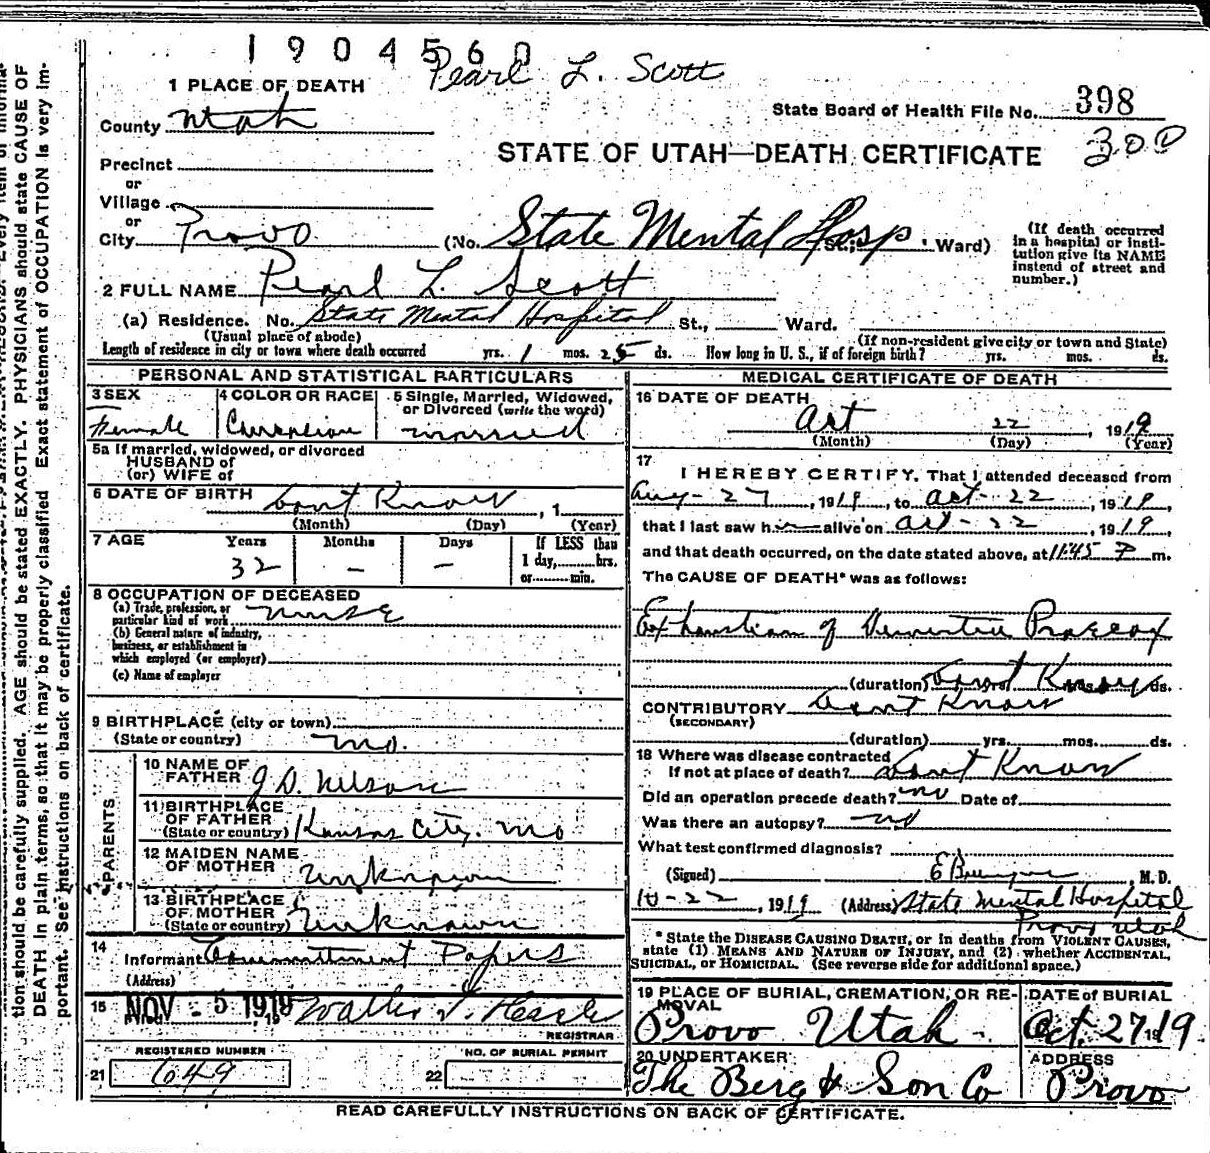 1904560
Pearl L. Scott
1 PLACE OF DEATH
State Board of Health File No. 398
County Utah
300
STATE OF UTAH—DEATH CERTIFICATE
Precinct
or
Village
or
City Provo (No. State Mental Hosp St.; Ward)
(If death occurred in a hospital or institution give its NAME instead of street and number.)
2 FULL NAME Pearl L. Scott
(a) Residence. No. State Mental Hospital St., Ward.
(Usual place of abode) (If non-resident give city or town and State)
Length of residence in city or town where death occurred yrs. 1 mos. 25 ds. How long in U. S., if of foreign birth? yrs. mos. ds.
PERSONAL AND STATISTICAL PARTICULARS
3 SEX Female
4 COLOR OR RACE Caucasian
5 Single, Married, Widowed, or Divorced (write the word) married
5a If married, widowed, or divorced
HUSBAND of
(or) WIFE of
6 DATE OF BIRTH Dont Know , 1
(Month) (Day) (Year)
7 AGE Years Months Days If LESS than
32 — — 1 day, hrs.
or min.
8 OCCUPATION OF DECEASED
(a) Trade, profession, or particular kind of work nurse
(b) General nature of industry, business, or establishment in which employed (or employer)
(c) Name of employer
9 BIRTHPLACE (city or town)
(State or country) Mo.
PARENTS
10 NAME OF FATHER J. D. Nelson
11 BIRTHPLACE OF FATHER (State or country) Kansas City. Mo
12 MAIDEN NAME OF MOTHER Unknown
13 BIRTHPLACE OF MOTHER (State or country) Unknown
14 Informant Committment Papers
(Address)
15 Filed NOV - 5 1919, 19 Walter
REGISTRAR
REGISTERED NUMBER
21 649
NO. OF BURIAL PERMIT
22
MEDICAL CERTIFICATE OF DEATH
16 DATE OF DEATH
Oct 22, 1919
(Month) (Day) (Year)
17
I HEREBY CERTIFY, That I attended deceased from
Aug - 27, 1919, to Oct - 22, 1919,
that I last saw her alive on Oct - 22, 1919,
and that death occurred, on the date stated above, at 11:45 P m.
The CAUSE OF DEATH* was as follows:
Exhaustion of Dementia Praecox
(duration) Dont Know yrs. mos. ds.
CONTRIBUTORY Dont Know
(SECONDARY)
(duration) yrs. mos. ds.
18 Where was disease contracted
If not at place of death? Dont Know
Did an operation precede death? no Date of
Was there an autopsy? no
What test confirmed diagnosis?
(Signed) , M. D.
10-22, 1919 (Address) State Mental Hospital
Provo Utah
* State the DISEASE CAUSING DEATH, or in deaths from VIOLENT CAUSES,
state (1) MEANS AND NATURE OF INJURY, and (2) whether ACCIDENTAL,
SUICIDAL, or HOMICIDAL. (See reverse side for additional space.)
19 PLACE OF BURIAL, CREMATION, OR REMOVAL
Provo Utah.
DATE of BURIAL
Oct. 27 1919
20 UNDERTAKER
The Berg & Son Co
ADDRESS
Provo
READ CAREFULLY INSTRUCTIONS ON BACK OF CERTIFICATE.
tion should be carefully supplied. AGE should be stated EXACTLY. PHYSICIANS should state CAUSE OF
DEATH in plain terms, so that it may be properly classified. Exact statement of OCCUPATION is very im-
portant. See instructions on back of certificate.